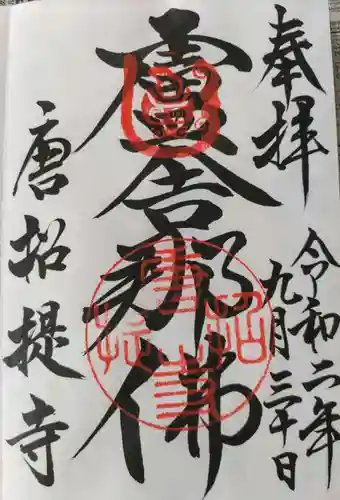 奉拝
令和二年
九月三十日
盧舎那仏
唐招提寺